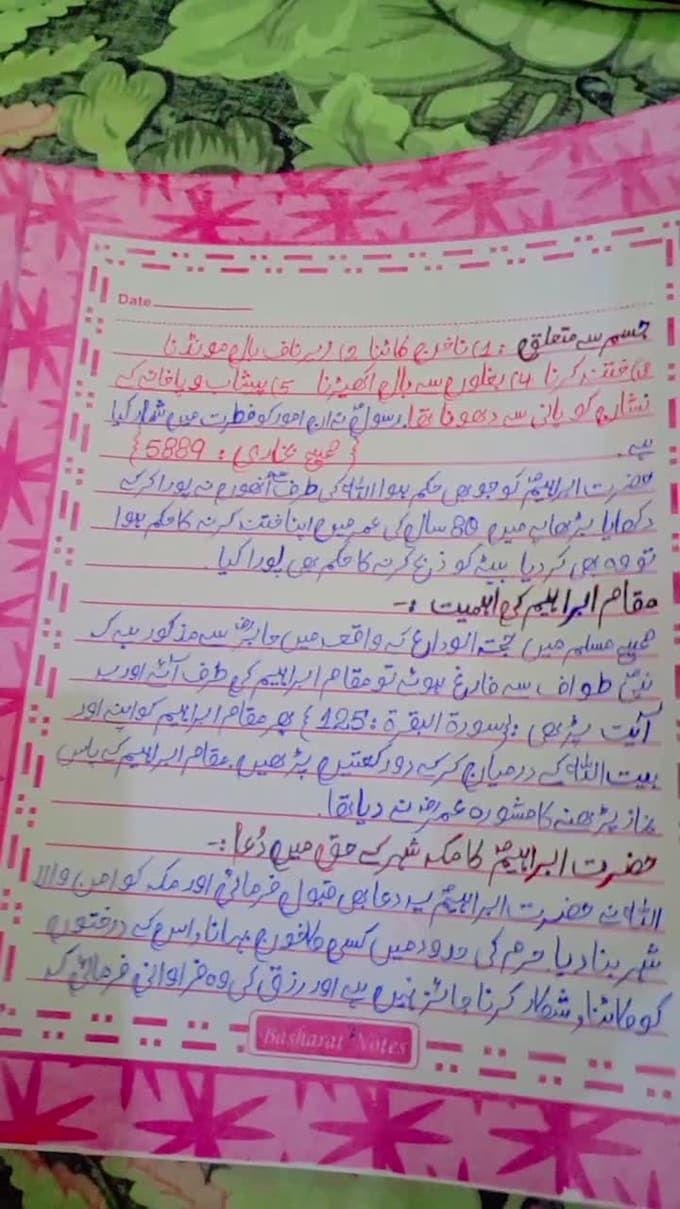 Date
جسم سے متعلق : 1) ناخن کاٹنا 2) زیر ناف بال مونڈنا
3) ختنہ کرنا 4) بغلوں سے بال اکھیڑنا 5) پیشاب و پاخانہ کے
نشان کو پانی سے دھونا تھا۔ رسولؐ نے ان امور کو فطرت میں شمار کیا
ہے۔ {صحیح بخاری : 5889}
حضرت ابراہیمؑ کو جو بھی حکم ہوا اللہ کی طرف انھوں نے پورا کر کے
دکھایا بڑھاپے میں 80 سال کی عمر میں اپنا ختنہ کرنے کا حکم ہوا
تو وہ بھی کر دیا بیٹے کو ذبح کرنے کا حکم بھی پورا کیا۔
مقام ابراہیم کی اہمیت :-
صحیح مسلم میں حجتہ الوداع کے واقعہ میں جابرؓ سے مذکور ہے کہ
نبیؐ طواف سے فارغ ہوئے تو مقام ابراہیم کی طرف آئے اور یہ
آیت پڑھی : {سورة البقرة : 125} پھر مقام ابراہیم کو اپنے اور
بیت اللہ کے درمیان کر کے دو رکعتیں پڑھیں۔ مقام ابراہیم کے پاس
نماز پڑھنے کا مشورہ عمرؓ نے دیا تھا۔
حضرت ابراہیمؑ کا مکہ شہر کے حق میں دُعا :-
اللہ نے حضرت ابراہیمؑ یہ دعا بھی قبول فرمائی اور مکہ کو امن والا
شہر بنا دیا۔ حرم کی حدود میں کسی کا خون بہانا، اس کے درختوں
کو کاٹنا، شکار کرنا جائز نہیں ہے اور رزق کی وہ فراوانی فرمائی کہ
Basharat Notes